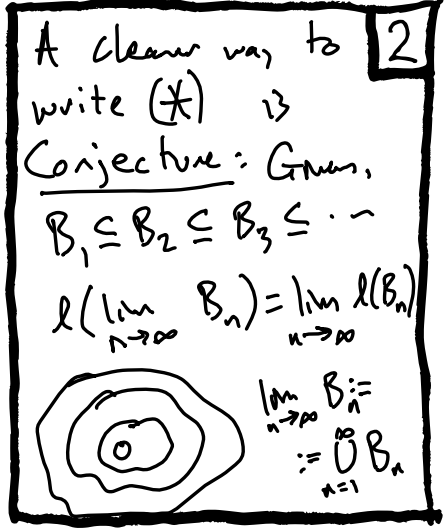 A cleaner way to
2
write (*) is
Conjecture: Given,
B₁ ⊆ B₂ ⊆ B₃ ⊆ ⋯
ℓ(lim_{n→∞} B_n) = lim_{n→∞} ℓ(B_n)
lim_{n→∞} B_n :=
:= ⋃_{n=1}^{∞} B_n